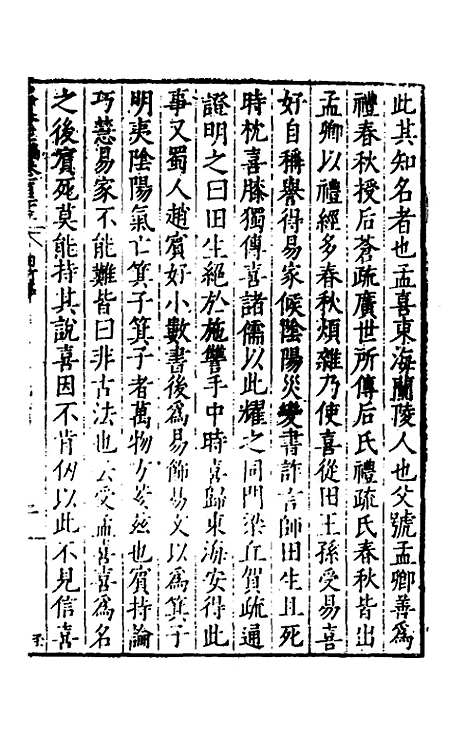 此其知名者也孟喜東海蘭陵人也父號孟卿善爲
禮春秋授后蒼疏廣世所傳后氏禮疏氏春秋皆出
孟卿以禮經多春秋煩雜乃使喜從田王孫受易喜
好自稱譽得易家候陰陽災變書詐言師田生且死
時枕喜膝獨傳喜諸儒以此耀之同門梁丘賀疏通
證明之曰田生絕於施讐手中時喜歸東海安得此
事又蜀人趙賓好小數書後爲易飾易文以爲箕子
明夷陰陽氣亡箕子箕子者萬物方荄茲也賓持論
巧慧易家不能難皆曰非古法也云受孟喜喜爲名
之後賓死莫能持其說喜因不肯仞以此不見信喜